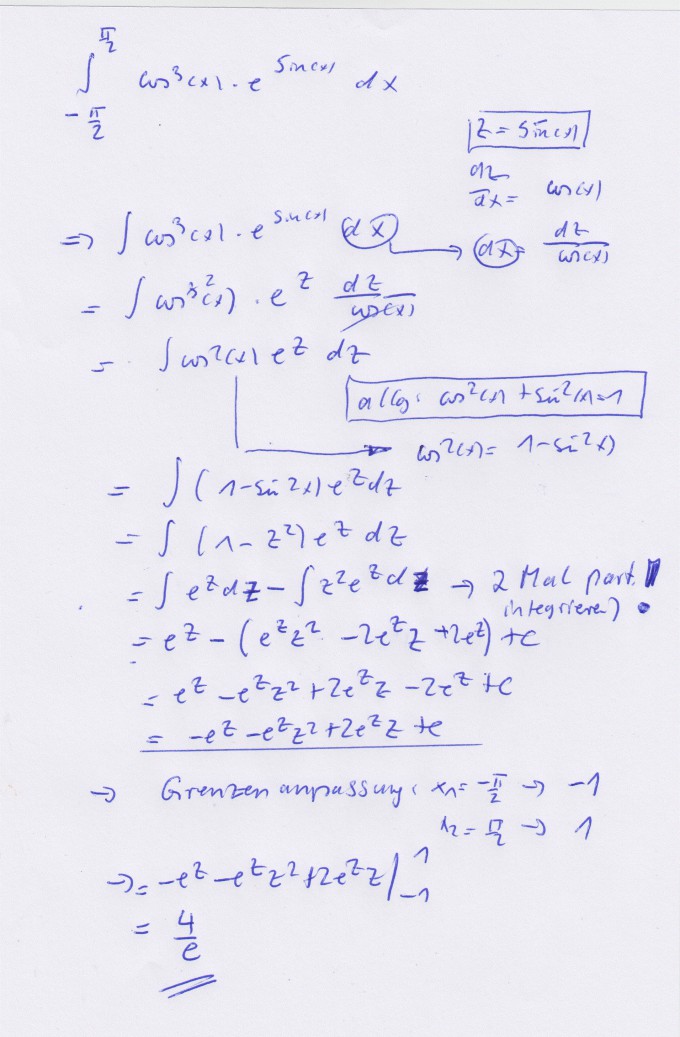 ∫_{-π/2}^{π/2} cos³(x) · e^{sin(x)} dx
z = sin(x)
dz/dx = cos(x)
=> ∫ cos³(x) · e^{sin(x)} dx → dx = dz/cos(x)
= ∫ cos²(x) · e^z dz/cos(x)
= ∫ cos²(x) e^z dz
allg: cos²(x) + sin²(x) = 1
→ cos²(x) = 1-sin²x)
= ∫ (1-sin²x) e^z dz
= ∫ (1-z²) e^z dz
= ∫ e^z dz - ∫ z² e^z dz → 2 Mal part.
integrieren)
= e^z - (e^z z² - 2e^z z + 2e^z) + c
= e^z - e^z z² + 2e^z z - 2e^z + c
= -e^z - e^z z² + 2e^z z + c
→ Grenzenanpassung: x₁ = -π/2 → -1
x₂ = π/2 → 1
→ = -e^z - e^z z² + 2e^z z |_{-1}^{1}
= 4/e